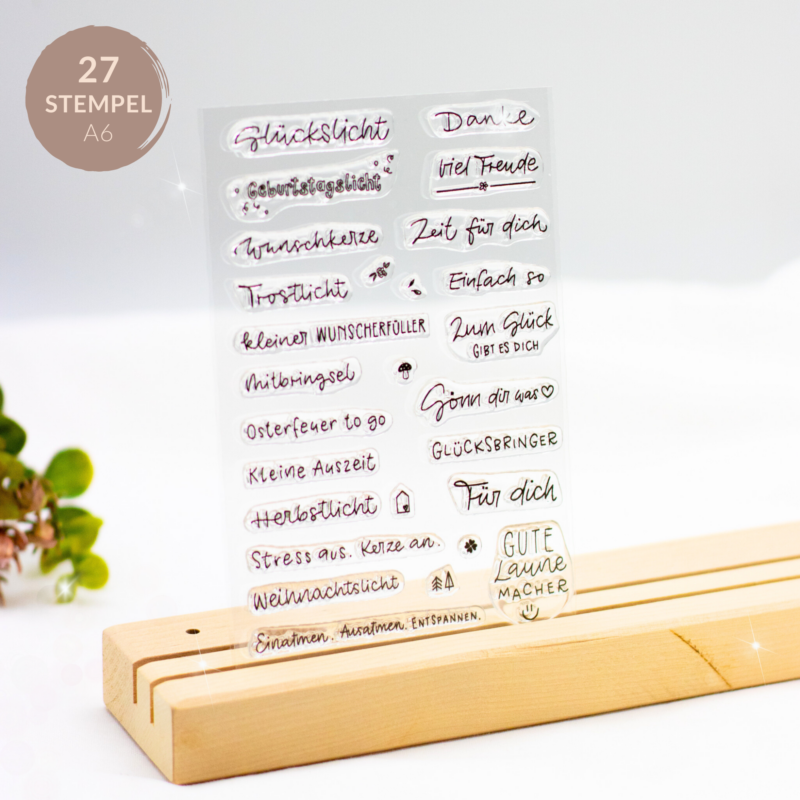 27
STEMPEL
A6
Glückslicht
Danke
Geburtstagslicht
Viel Freude
Wunschkerze
Zeit für dich
Trostlicht
Einfach so
kleiner WUNSCHERFÜLLER
Zum Glück
GIBT ES DICH
Mitbringsel
Gönn dir was
Osterfeuer to go
GLÜCKSBRINGER
Kleine Auszeit
Für dich
Herbstlicht
Stress aus. Kerze an.
GUTE
Laune
MACHER
Weihnachtslicht
Einatmen. Ausatmen. ENTSPANNEN.